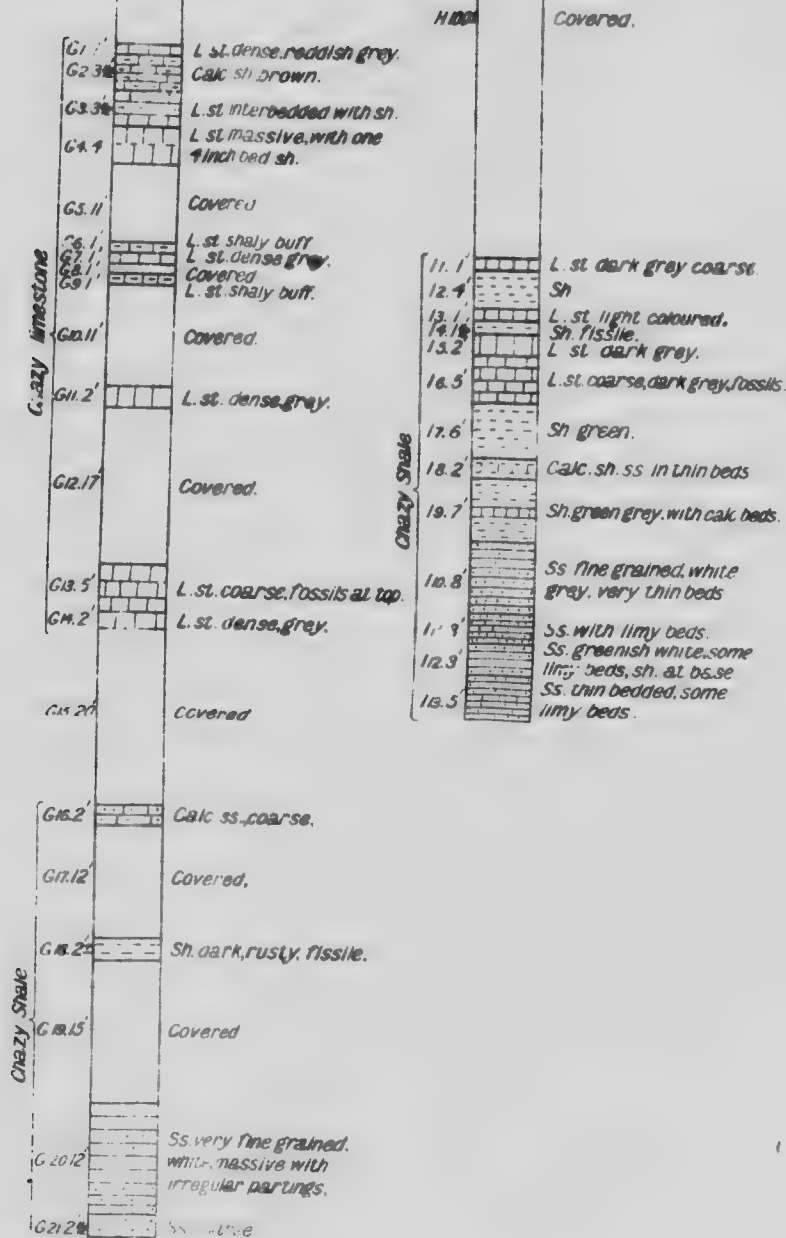 Chazy limestone
G1.1' L. st. dense, reddish grey.
G2.3' Calc sh. brown.
G3.3' L. st interbedded with sh.
G4.4 L. st massive, with one
4 inch bed sh.
G5.11' Covered
G6.1' L. st. shaly buff
G7.1' L. st. dense grey.
G8.1' Covered
G9.1' L. st. shaly buff.
G10.11' Covered.
G11.2' L. st. dense, grey.
G12.17' Covered.
G13.5' L. st. coarse, fossils at top.
G14.2' L. st. dense, grey.
G15.20' Covered
Chazy Shale
G16.2' Calc ss., coarse.
G17.12' Covered.
G18.2' Sh. dark, rusty, fissile.
G19.15' Covered
G20.12' Ss. very fine grained.
white, massive with
irregular partings.
G21.2 Ss.
H100 Covered.
Chazy Shale
I1.1' L. st dark grey coarse.
I2.4' Sh
I3.1' L. st. light coloured.
I4.1 Sh. fissile.
I5.2' L. st. dark grey.
I6.5' L. st. coarse, dark grey, fossils.
I7.6' Sh green.
I8.2' Calc. sh. ss in thin beds
I9.7' Sh. green grey, with calc beds.
I10.8' Ss fine grained, white
grey, very thin beds
I11.3' Ss. with limy beds.
I12.3' Ss. greenish white, some
limy beds, sh. at base
I13.5' Ss. thin bedded, some
limy beds.